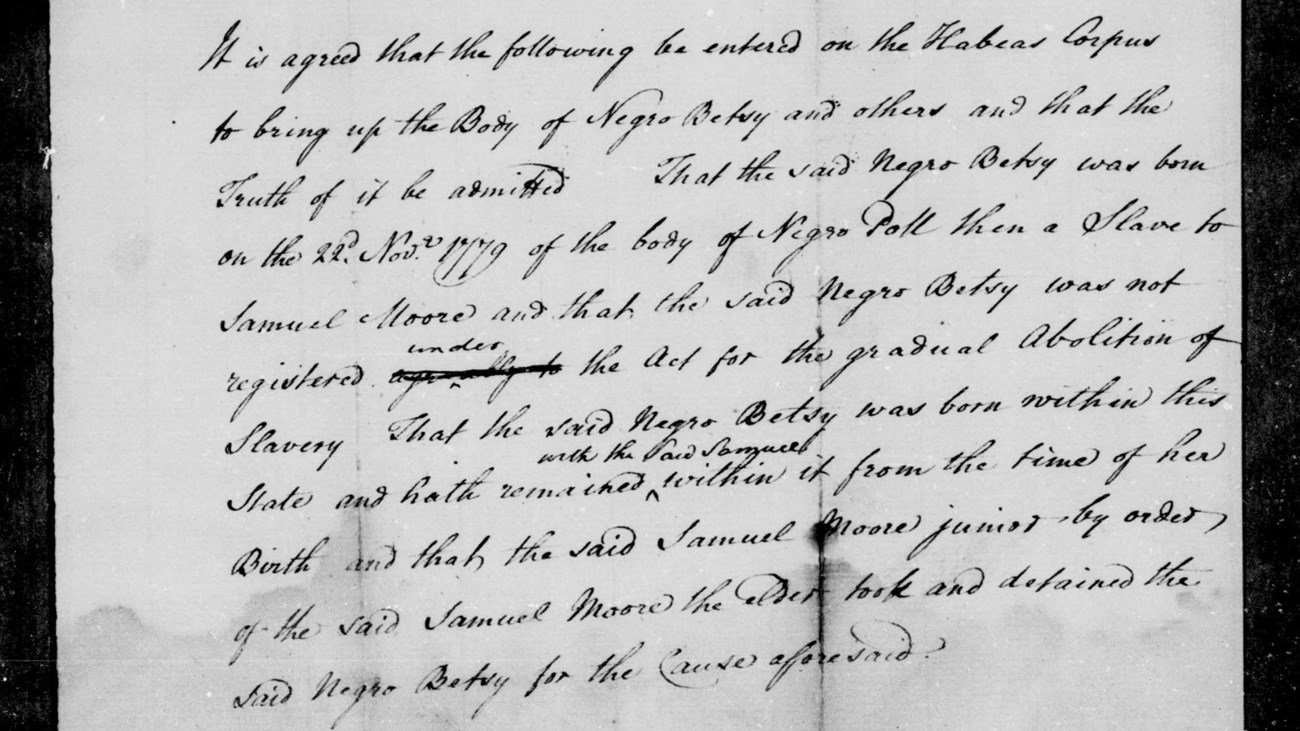 It is agreed that the following be entered on the Habeas Corpus
to bring up the Body of Negro Betsy and others and that the
Truth of it be admitted That the said Negro Betsy was born
on the 22d. Novr. 1779 of the body of Negro Poll then a Slave to
Samuel Moore and that the said Negro Betsy was not
under
registered the Act for the gradual Abolition of
Slavery That the said Negro Betsy was born within this
with the said Samuel
State and hath remained ‸ within it from the time of her
Birth and that the said Samuel Moore junior by order
of the said Samuel Moore the elder took and detained the
said Negro Betsy for the Cause aforesaid